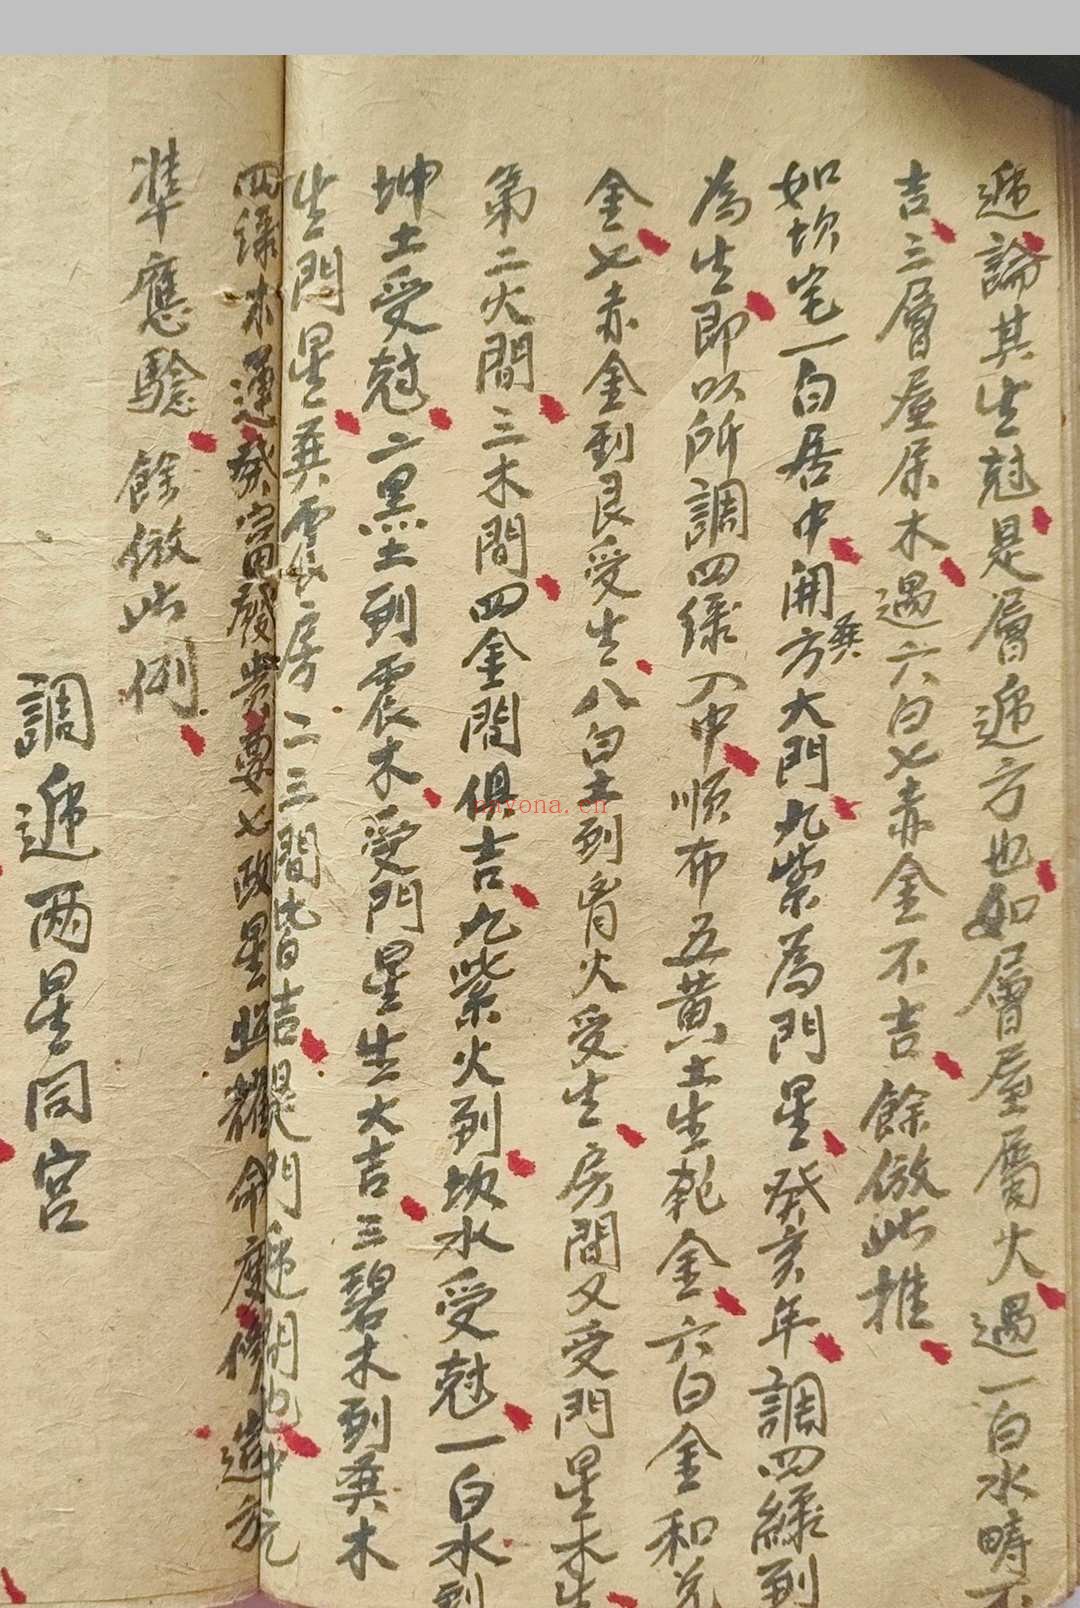 遞論其生尅是層遞方也如層屋屬火遇一白水時不
吉三層屋屬木遇六白七赤金不吉餘倣此推
如坎宅一白居中開巽方大門九紫為門星癸亥年調四綠到
為生即以所調四綠入中順布五黃土生乾金六白金和兌
金七赤金到艮受生八白土到离火受生房間又受門星木生
第二火間三木間四金間俱吉九紫火到坎水受尅一白水到
坤土受尅二黑土到震木受門星生大吉三碧木到巽木
生門星巽震房二三間皆吉是門遞間也中宄
四綠木運發富田發貴要七政星照耀命度修造方
準應驗餘倣此例
調遞兩星同宮
nayona.cn